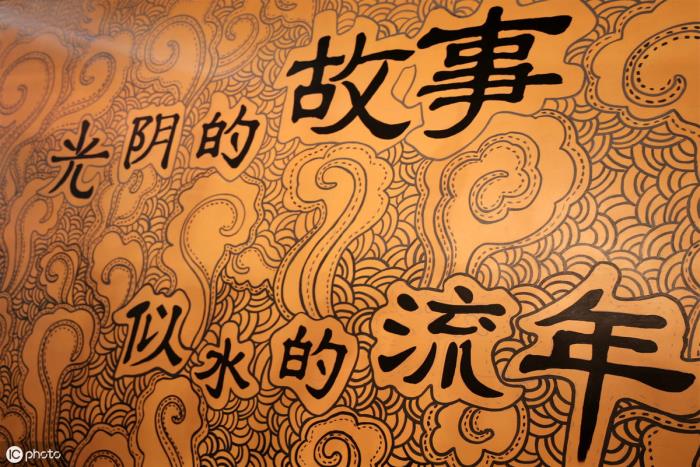 光阴的故事
似水的流年
iC photo